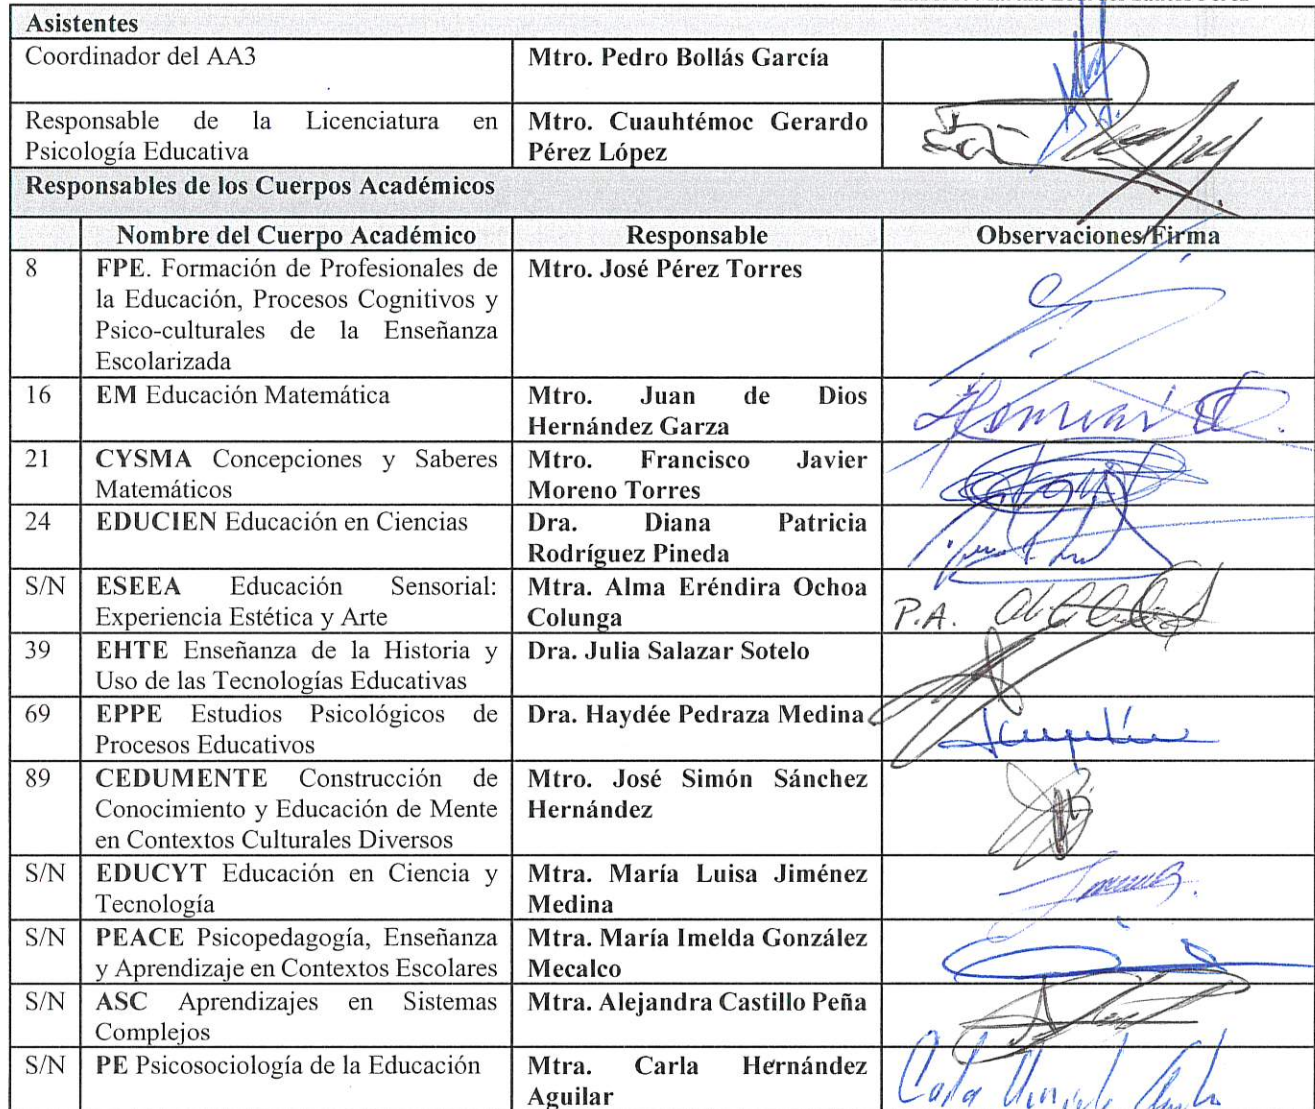 Asistentes
Coordinador del AA3
Mtro. Pedro Bollás García
Responsable de la Licenciatura en
Psicología Educativa
Mtro. Cuauhtémoc Gerardo
Pérez López
Responsables de los Cuerpos Académicos
Nombre del Cuerpo Académico Responsable Observaciones/Firma
8
FPE. Formación de Profesionales de
la Educación, Procesos Cognitivos y
Psico-culturales de la Enseñanza
Escolarizada
Mtro. José Pérez Torres
16
EM Educación Matemática
Mtro. Juan de Dios
Hernández Garza
21
CYSMA Concepciones y Saberes
Matemáticos
Mtro. Francisco Javier
Moreno Torres
24
EDUCIEN Educación en Ciencias
Dra. Diana Patricia
Rodríguez Pineda
S/N
ESEEA Educación Sensorial:
Experiencia Estética y Arte
Mtra. Alma Eréndira Ochoa
Colunga
P.A.
39
EHTE Enseñanza de la Historia y
Uso de las Tecnologías Educativas
Dra. Julia Salazar Sotelo
69
EPPE Estudios Psicológicos de
Procesos Educativos
Dra. Haydée Pedraza Medina
89
CEDUMENTE Construcción de
Conocimiento y Educación de Mente
en Contextos Culturales Diversos
Mtro. José Simón Sánchez
Hernández
S/N
EDUCYT Educación en Ciencia y
Tecnología
Mtra. María Luisa Jiménez
Medina
S/N
PEACE Psicopedagogía, Enseñanza
y Aprendizaje en Contextos Escolares
Mtra. María Imelda González
Mecalco
S/N
ASC Aprendizajes en Sistemas
Complejos
Mtra. Alejandra Castillo Peña
S/N
PE Psicosociología de la Educación
Mtra. Carla Hernández
Aguilar